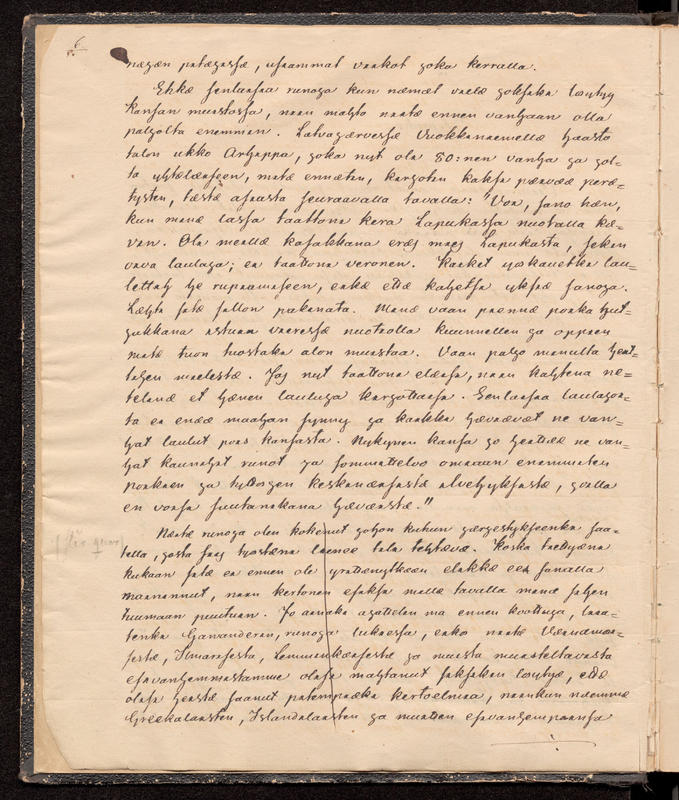 näjän pitäjässä, usiammat vaikot joka kerralla.
Ehkä senlaisia runoja kun nämät vielä joksikin löytyy
kansan muistossa, niin mahto niitä ennen vanhaan olla
paljolta enemmin. Latvajärvessä Vuokkiniemellä haasto
talon ukko Arhippa, joka nyt oli 80:nen vanha ja jol-
ta yhtäläiseen, mitä ennätin, kirjotin kaksi päivää perä-
tysten, tästä asiasta seuraavalla tavalla: "Voi, sano hän,
kun minä lassa taattoni kera Lapukassa nuotalla kä-
vin. Oli meillä kasakkana eräs mies Lapukasta, sekin
hyvä laulaja; ei taattoni veronen. Kaiket yökauvetki lau-
lettih he rupiamiseen, eikä että kahesti yksiä sanoja.
Lähti sitä sillon pakinata. Minä vaan piennä poika hut-
jukkana istuin vieressä nuotiolla kuunnellen ja oppien
mitä tuon tuostaki aloin muistaa. Vaan paljo minulta heit-
tihen mielestä. Jos nyt taattoni eläisi, niin kahtena ne-
telinä et hänen lauluja kirjottaisi. Senlaisia laulajoi-
ta ei enää maahan synny ja kaikki häviävät ne van-
hat laulut pois kansasta. Nykynen kansa jo heittää ne van-
hat kaunihit runot ja sommittelvo omiaan enimmiten
poikien ja tyttöjen keskinäisistä alvehyksistä, joilla
en voisi suutanikana häväistä."
Näitä runoja olen kokenut johon kuhun järjestykseenki saa-
tella, josta siis työstäni lienee tila tehtävä. Koska tiettyänä
kukaan sitä ei ennen ole yrittänytkään elikkä ees sanalla
maininnut, niin kertonen ensiksi millä tavalla minä siihen
tuumaan puutuin. Jo ainaki ajattelin ma ennen koottuja, liia-
tenki Gananderin, runoja lukiessa, eikö niitä Väinämöi-
sestä, Ilmarisesta, Lemminkäisestä ja muista muisteltavista
esivanhemmistamme olisi mahtanut siksikin löytyä, että
olisi heistä saanut pitempiäki kertoelmia, niinkun näemmä
Greekalaisten, Islandalaisten ja muitten esivanhempiansa
6